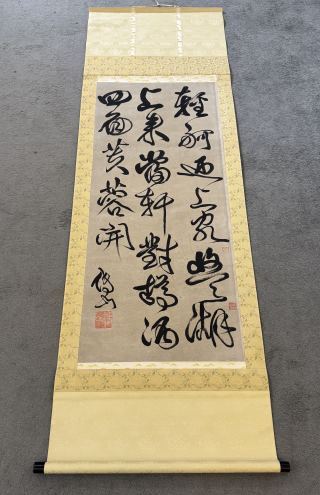 輕舸迎上客悠〻湖
上来當軒對樽酒
四面芙蓉開
傅山